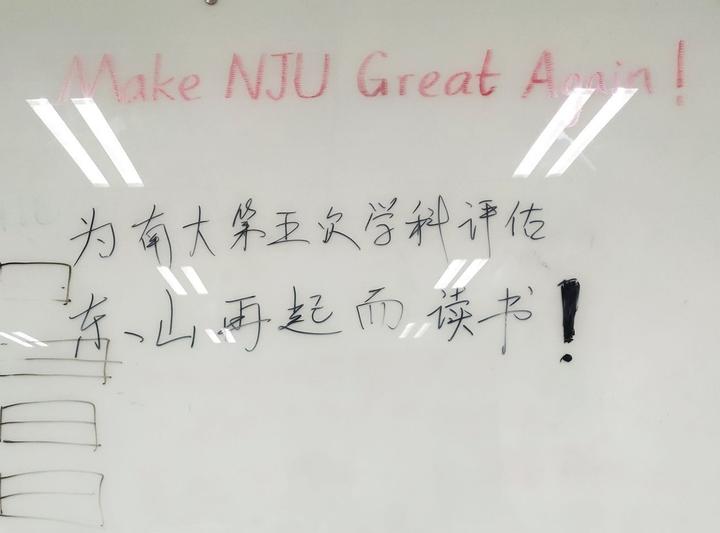 Make NJU Great Again!
为南大第五次学科评估
东山再起而读书!